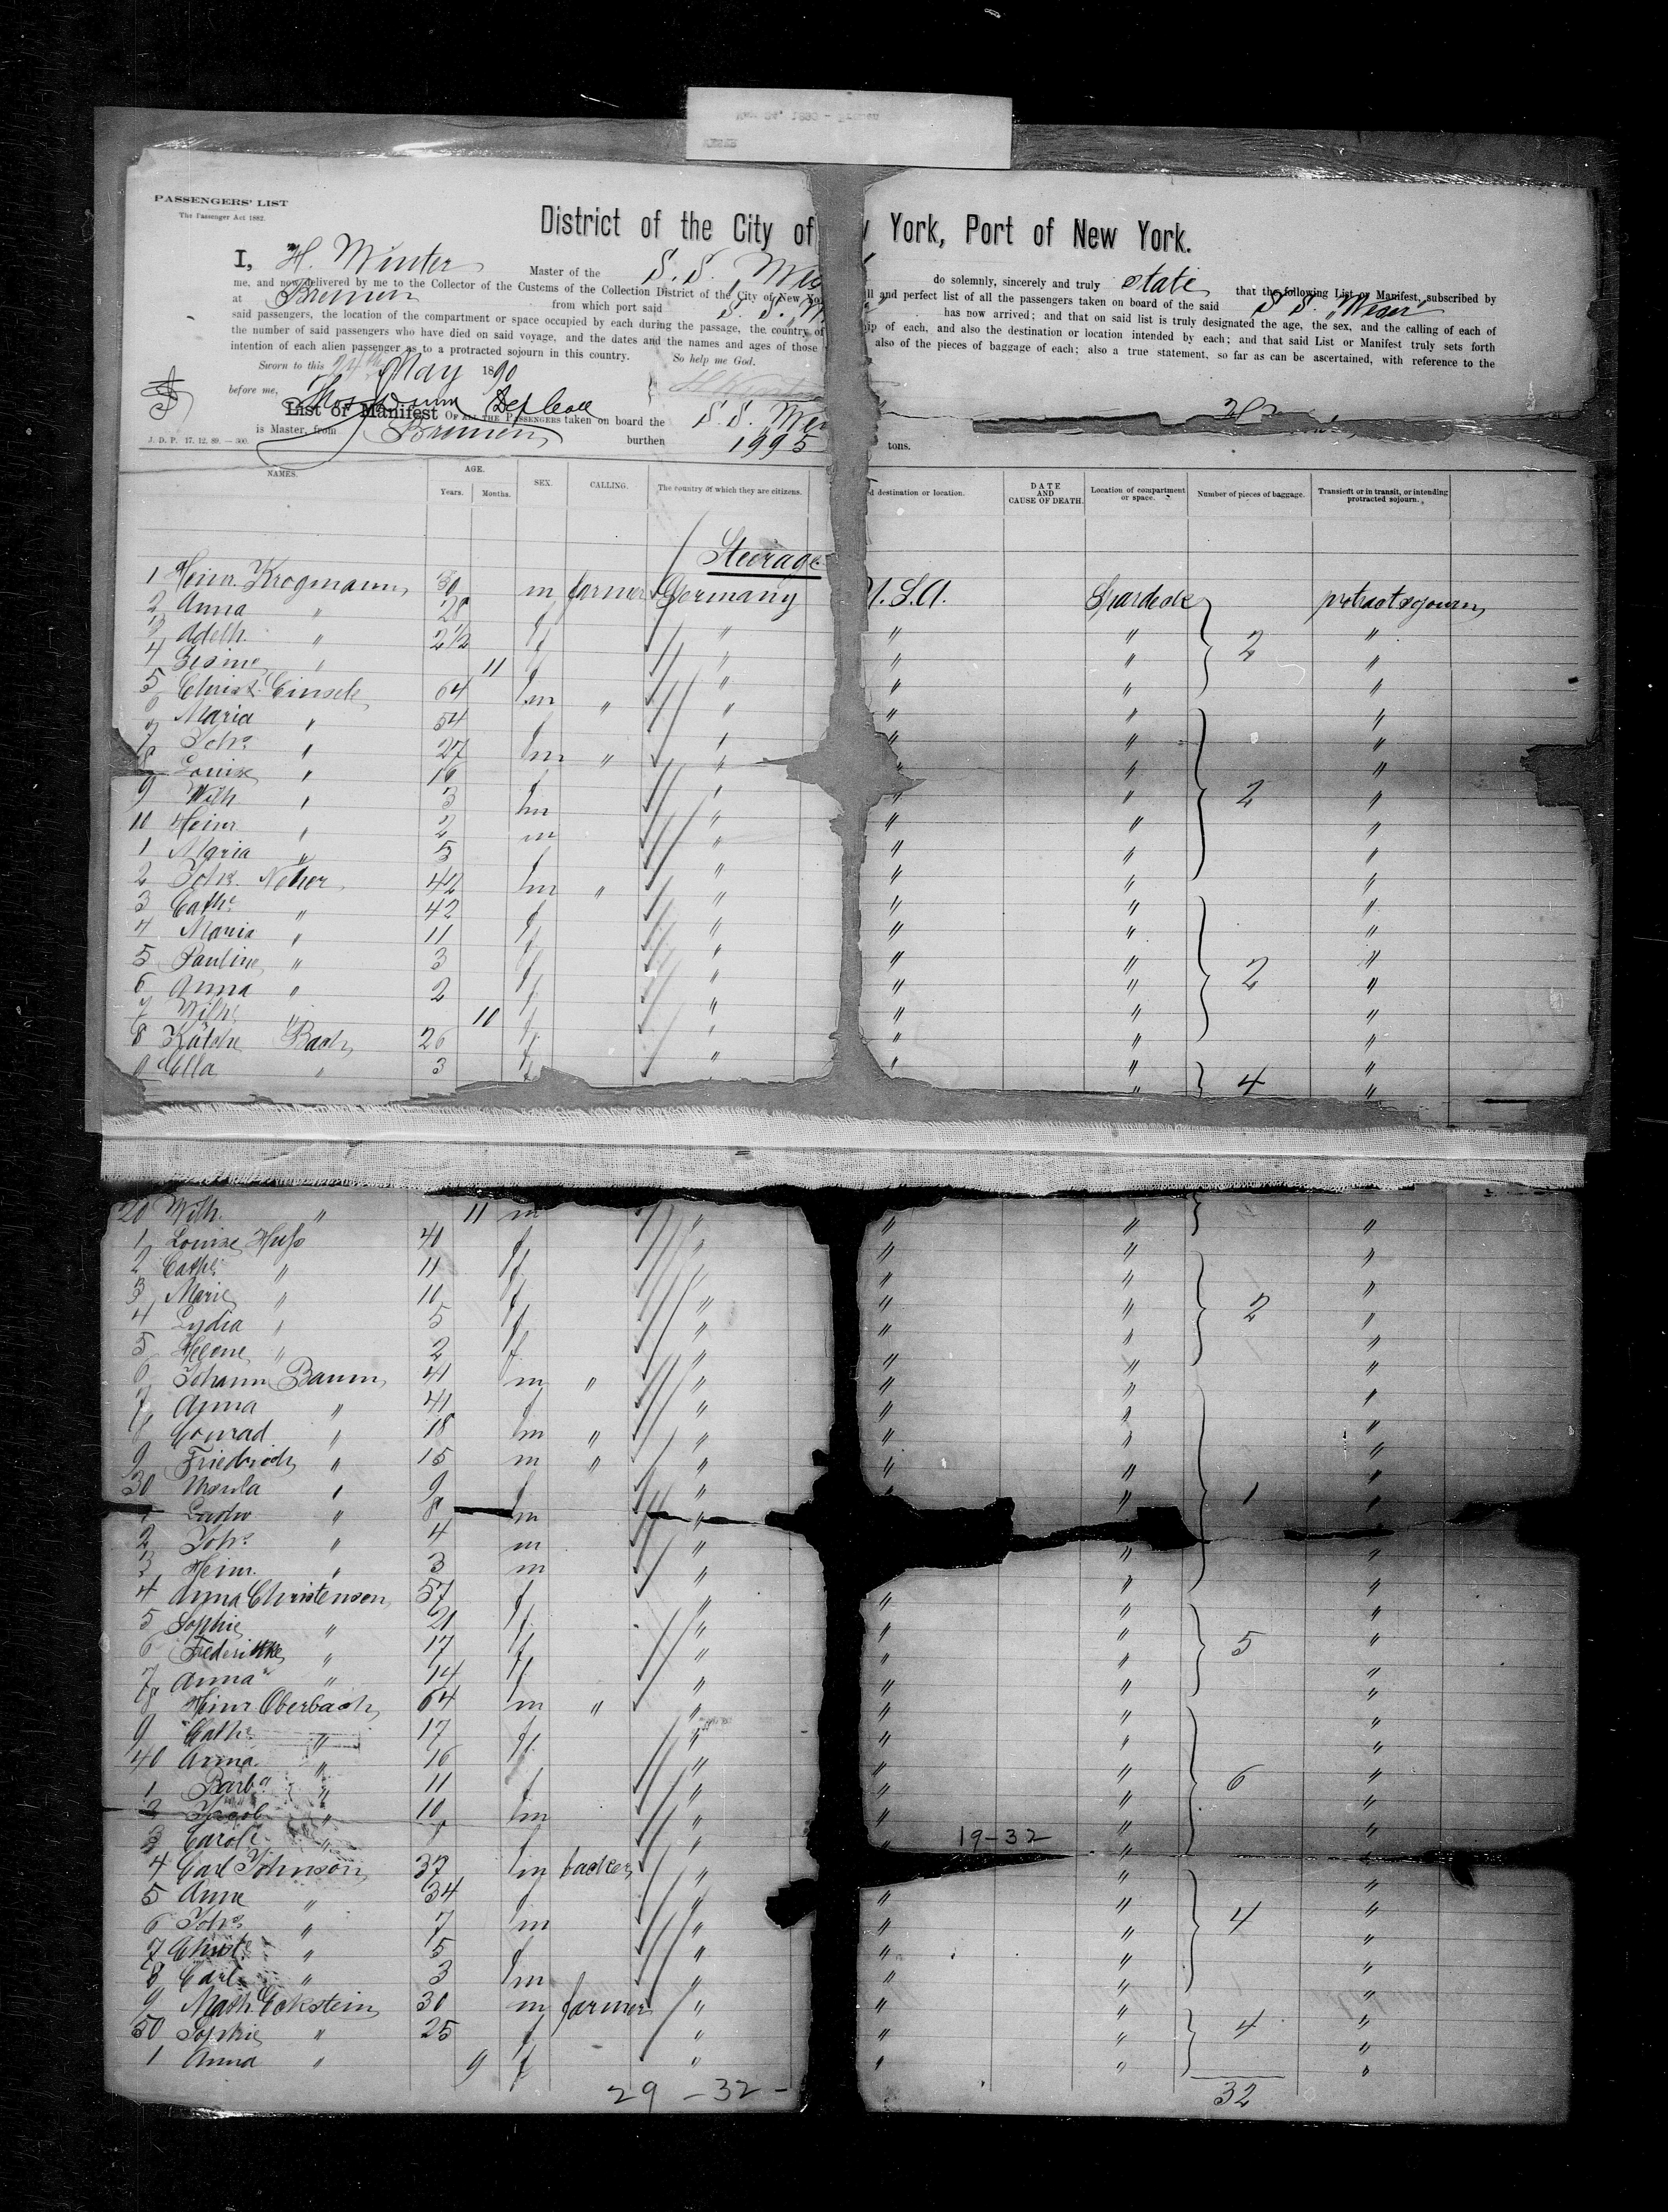 PASSENGERS' LIST
The Passenger Act 1882.
District of the City of York, Port of New York.
I, H. Winter Master of the S.S. do solemnly, sincerely and truly state that the following List or Manifest, subscribed by
me, and now delivered by me to the Collector of the Customs of the Collection District of the City of New and perfect list of all the passengers taken on board of the said S.S. "Weser"
at Bremen from which port said S.S. has now arrived; and that on said list is truly designated the age, the sex, and the calling of each of
said passengers, the location of the compartment or space occupied by each during the passage, the country of of each, and also the destination or location intended by each; and that said List or Manifest truly sets forth
the number of said passengers who have died on said voyage, and the dates and the names and ages of those also of the pieces of baggage of each; also a true statement, so far as can be ascertained, with reference to the
intention of each alien passenger as to a protracted sojourn in this country. So help me God.
Sworn to this 24th May 1890
before me,
List or Manifest OF ALL THE PASSENGERS taken on board the S.S.
is Master, from Bremen burthen 1995 tons.
J. D. P. 17. 12. 89. — 300.
NAMES. AGE. Years. Months. SEX. CALLING. The country of which they are citizens. destination or location. DATE AND CAUSE OF DEATH. Location of compartment or space. Number of pieces of baggage. Transient or in transit, or intending protracted sojourn.
Steerage
1 Heinr. Krogmann 30 m farmer Germany U.S.A. Spardeck protract sojourn
2 Anna " 28 f " " " "
3 Adelh. " 2 1/2 f " " " 2 "
4 Gesine " 11 f " " " "
5 Christ. Einsele 64 m " " " " "
6 Maria " 54 f " " " "
7 Joh. " 27 m " " " " "
8 Louise " 16 f " " " "
9 Wilh " 3 m " " " 2 "
10 Heinr. " 2 m " " " "
1 Maria " 5 f " " " "
2 Joh. Neher 42 m " " " " "
3 Cath. " 42 f " " " "
4 Maria " 11 f " " " "
5 Pauline " 3 f " " " 2 "
6 Anna " 2 f " " " "
7 Wilh. " 10 f " " " "
8 Käthe Bach 26 f " " " "
9 Ella " 3 f " " 4 "
20 Wilh. " 11 m " " " "
1 Louise Huß 40 f " " " "
2 Cath. " 11 f " " " "
3 Marie " 10 f " " " 2 "
4 Lydia " 5 f " " " "
5 Helene " 2 f " " " "
6 Johann Baum 41 m " " " " "
7 Anna " 41 f " " " "
8 Conrad " 18 m " " " " "
9 Friedrich " 15 m " " " " "
30 Ursula " 9 f " " " 1 "
1 Ludw " 8 m " "
2 Joh. " 4 m " " "
3 Heinr. " 3 m " " "
4 Anna Christenson 57 f " " " "
5 Sophie " 21 f " " " "
6 Frederikke " 17 f " " " 5 "
7 Anna " 14 f " " " "
8 Heinr. Oberbach 64 m " " " " "
9 Cath. " 17 f " " " "
40 Anna " 16 f " " " "
1 Barb. " 11 f " " " 6 "
2 Jacob " 10 m " " " "
3 Carol. " f " " " "
19-32
4 Carl Johnson 37 m backer " " " "
5 Anne " 34 f " " " "
6 Joh. " 7 m " " " 4 "
7 Christ. " 5 f " " " "
8 Carl " 3 m " " " "
9 Math. Eckstein 30 m farmer " " " "
50 Sophie " 25 f " " " 4 "
1 Anna " 9 f " " " "
29 - 32 -
32